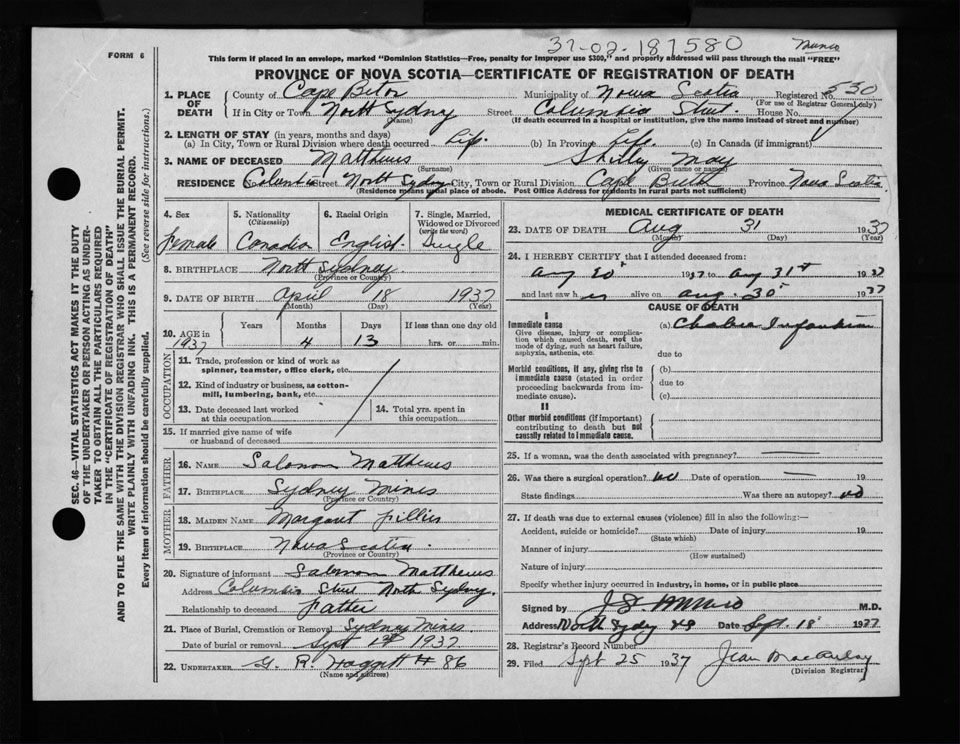 37-02-187580
Munro
FORM 6
This form if placed in an envelope, marked "Dominion Statistics—Free, penalty for improper use $300," and properly addressed will pass through the mail "FREE"
PROVINCE OF NOVA SCOTIA—CERTIFICATE OF REGISTRATION OF DEATH
1. PLACE OF DEATH County of Cape Breton Municipality of Nova Scotia Registered No. 530
(For use of Registrar General only)
If in City or Town North Sydney Street Columbia Street House No.
(Name) (If death occurred in a hospital or institution, give the name instead of street and number)
2. LENGTH OF STAY (in years, months and days)
(a) In City, Town or Rural Division where death occurred Life (b) In Province Life. (c) In Canada (if immigrant)
3. NAME OF DECEASED Matthews Shirley May
(Surname) (Given name or names)
RESIDENCE No. Columbia Street North Sydney City, Town or Rural Division Cape Breton Province Nova Scotia
(Residence means usual place of abode. Post Office Address for residents in rural parts not sufficient)
SEC. 46—VITAL STATISTICS ACT MAKES IT THE DUTY
OF THE UNDERTAKER OR PERSON ACTING AS UNDER-
TAKER TO OBTAIN ALL THE PARTICULARS REQUIRED
IN THE "CERTIFICATE OF REGISTRATION OF DEATH"
AND TO FILE THE SAME WITH THE DIVISION REGISTRAR WHO SHALL ISSUE THE BURIAL PERMIT.
WRITE PLAINLY WITH UNFADING INK. THIS IS A PERMANENT RECORD.
Every item of information should be carefully supplied. (See reverse side for instructions.)
4. Sex 5. Nationality 6. Racial Origin 7. Single, Married,
(Citizenship) Widowed or Divorced
(write the word)
Female Canadian English. Single
8. BIRTHPLACE North Sydney
(Province or Country)
9. DATE OF BIRTH April 18 1937
(Month) (Day) (Year)
10. AGE in Years Months Days If less than one day old
1937 4 13 hrs. or min.
OCCUPATION
11. Trade, profession or kind of work as
spinner, teamster, office clerk, etc.
12. Kind of industry or business, as cotton-
mill, lumbering, bank, etc.
13. Date deceased last worked 14. Total yrs. spent in
at this occupation this occupation
15. If married give name of wife
or husband of deceased
FATHER
16. NAME Salomon Matthews
17. BIRTHPLACE Sydney Mines
(Province or Country)
MOTHER
18. MAIDEN NAME Margaret Fillier
19. BIRTHPLACE Nova Scotia.
(Province or Country)
20. Signature of informant Salomon Matthews
Address Columbia Street North Sydney.
Relationship to deceased Father
21. Place of Burial, Cremation or Removal Sydney Mines.
Date of burial or removal Sept 1st 1937
22. UNDERTAKER G. R. Haggett # 86
(Name and address)
MEDICAL CERTIFICATE OF DEATH
23. DATE OF DEATH Aug 31 1937
(Month) (Day) (Year)
24. I HEREBY CERTIFY that I attended deceased from:
Aug 20 1937 to Aug 31st 1937
and last saw her alive on Aug. 30 1937
CAUSE OF DEATH
I
Immediate cause (a) Cholera Infantum
Give disease, injury or complica-
tion which caused death, not the
mode of dying, such as heart failure,
asphyxia, asthenia, etc. due to
Morbid conditions, if any, giving rise to (b)
immediate cause (stated in order due to
proceeding backwards from im-
mediate cause). (c)
II
Other morbid conditions (if important)
contributing to death but not
causally related to immediate cause.
25. If a woman, was the death associated with pregnancy? —
26. Was there a surgical operation? no Date of operation — 19
State findings Was there an autopsy? no
27. If death was due to external causes (violence) fill in also the following:—
Accident, suicide or homicide? Date of injury 19
(State which)
Manner of injury
(How sustained)
Nature of injury
Specify whether injury occurred in industry, in home, or in public place
Signed by Munro M.D.
Address North Sydney NS Date Sept. 18 1937
28. Registrar's Record Number
29. Filed Sept 25 1937 Jean MacAulay
(Division Registrar)